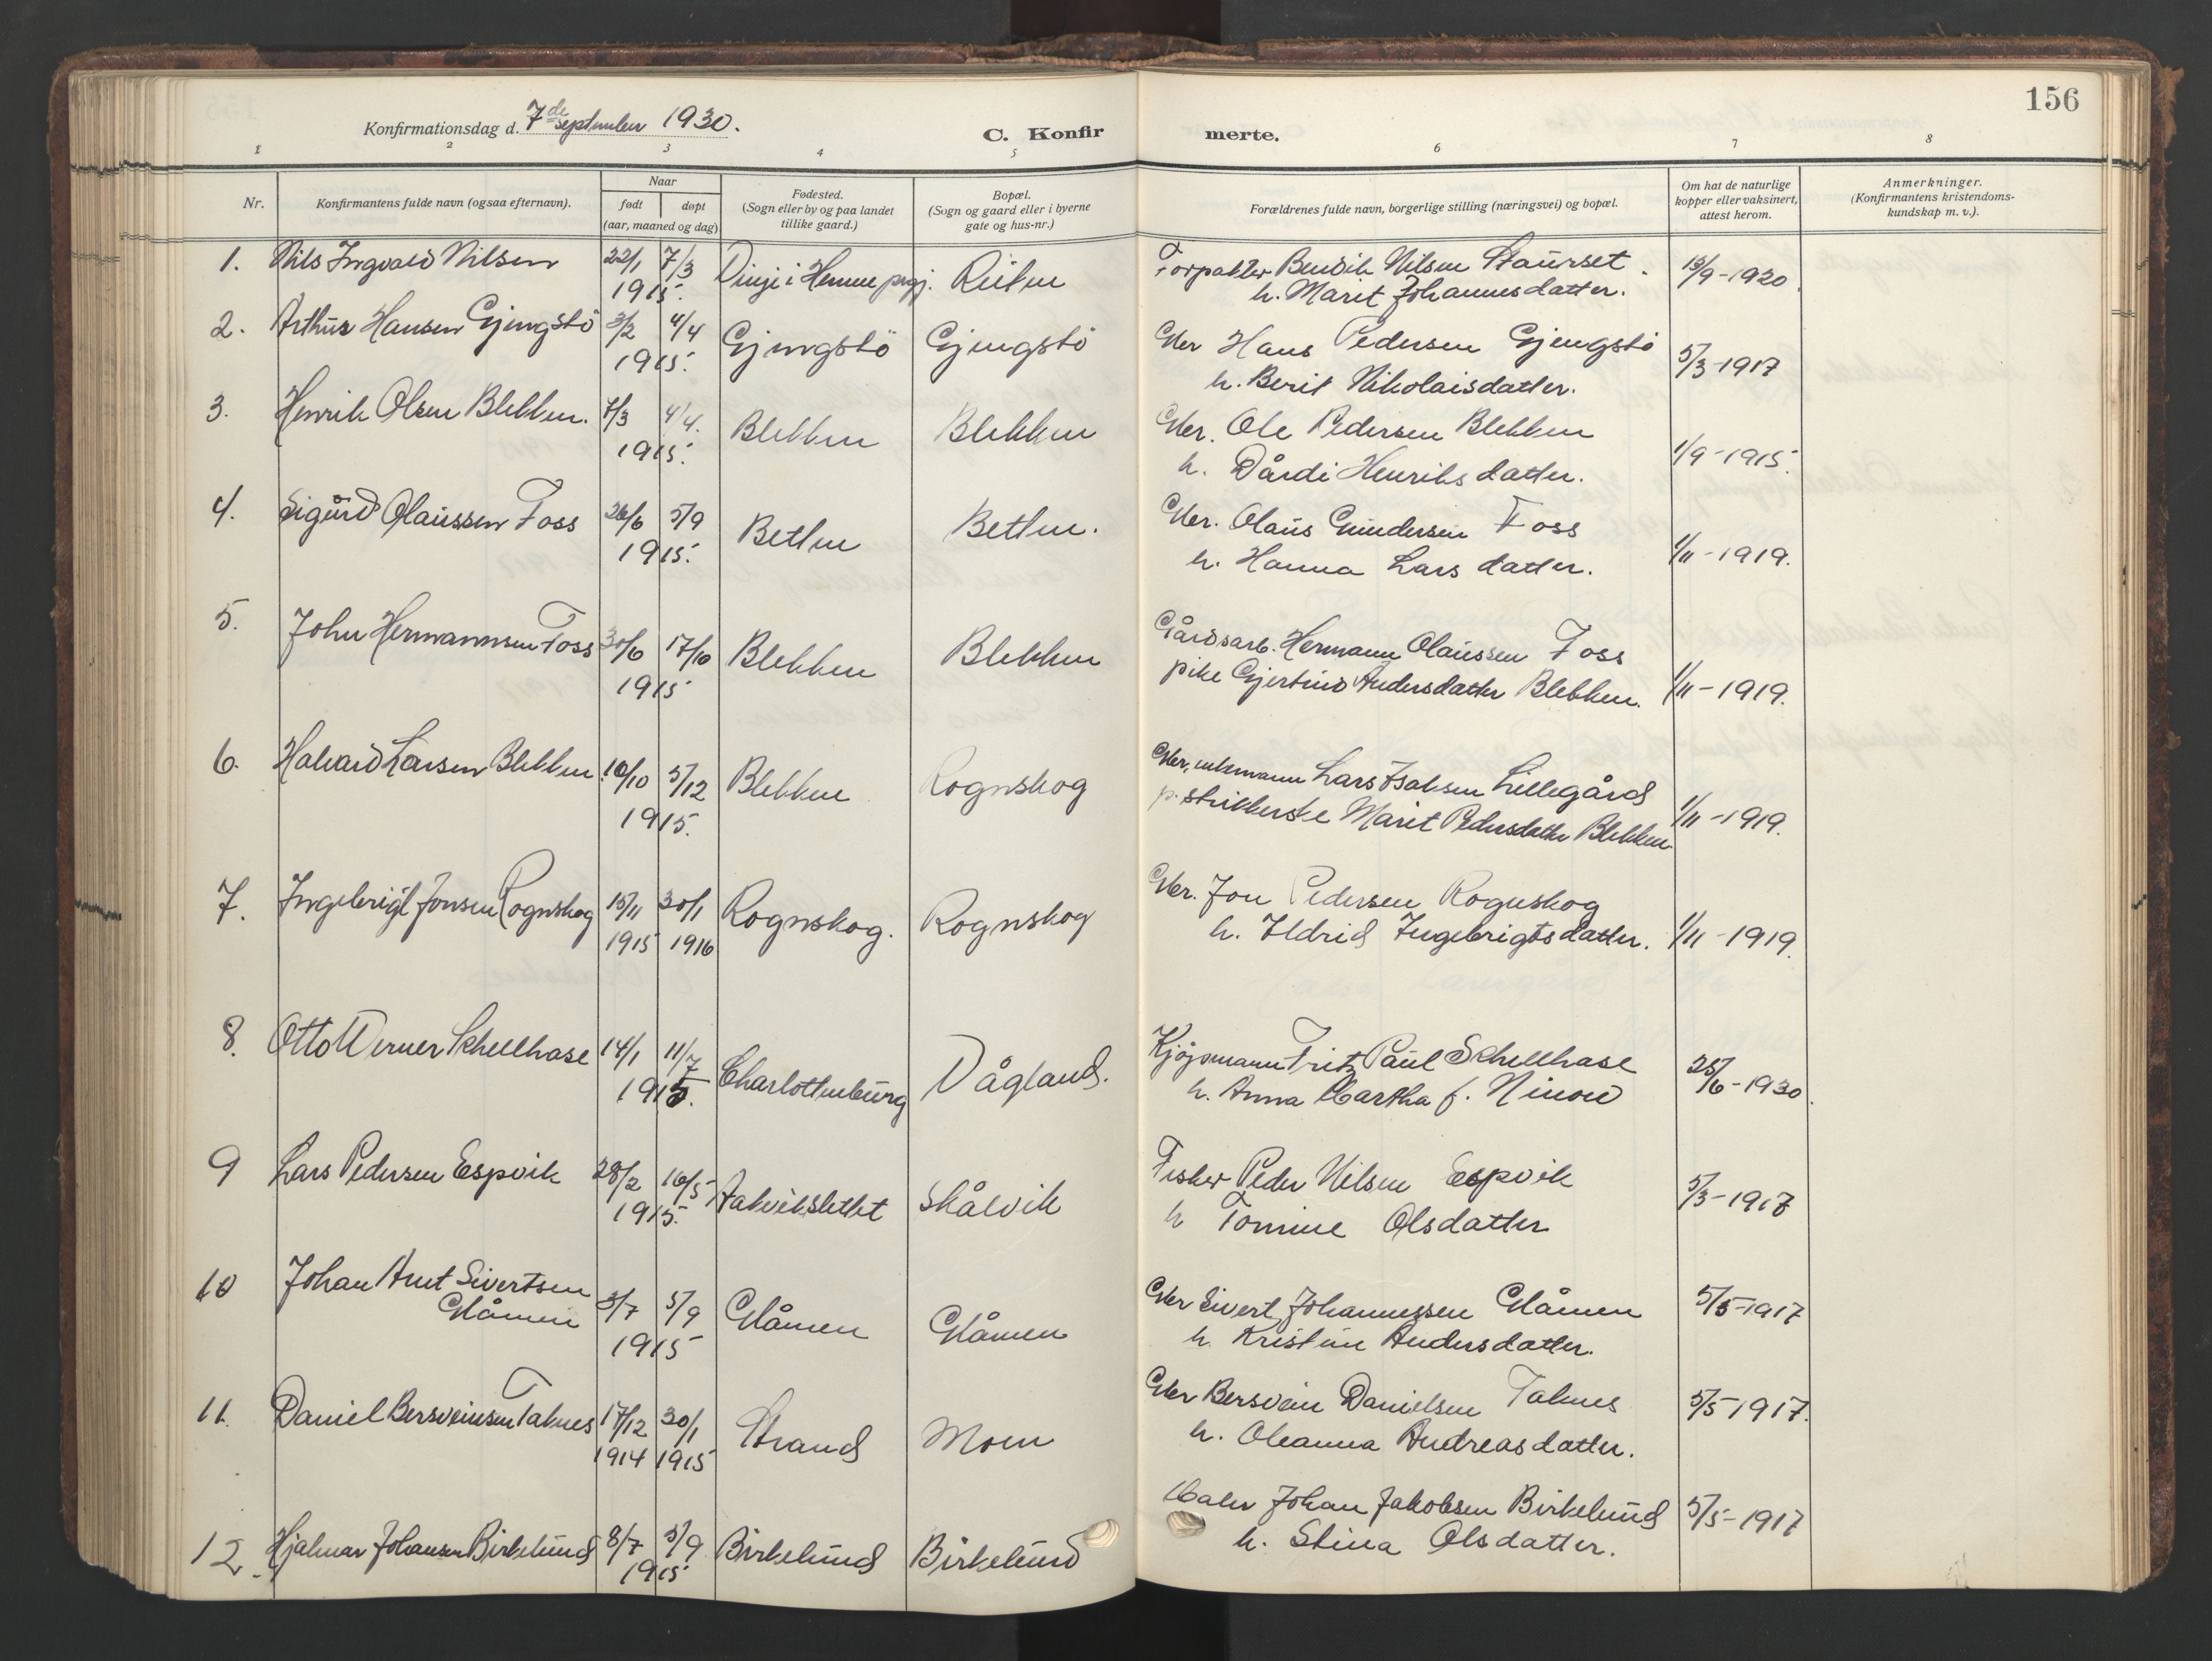 156
Konfirmationsdag d. 7de september 1930.
C. Konfirmerte.
1 2 3 4 5 6 7 8
Nr.
Konfirmantens fulde navn (ogsaa efternavn).
Naar
født døpt
(aar, maaned og dag)
Fødested.
(Sogn eller by og paa landet
tillike gaard.)
Bopæl.
(Sogn og gaard eller i byerne
gate og hus-nr.)
Forældrenes fulde navn, borgerlige stilling (næringsvei) og bopæl.
Om hat de naturlige
kopper eller vaksinert,
attest herom.
Anmerkninger.
(Konfirmantens kristendoms-
kundskap m. v.).
1. Nils Ingvald Nilsen 22/1 7/3 i Hemne prgj. Forpakter Bendik Nilsen Staurset 15/9-1920.
1915. h. Marit Johannesdatter.
2. Arthur Hansen Gjengstö 3/2 4/4 Gjengstö Gjengstö Gbr Hans Pedersen Gjengstö 5/3-1917
1915. h. Berit Nikolaisdatter.
3. Henrik Olsen Blekken. 7/3 4/4. Blekken Blekken Gbr. Ole Pedersen Blekken 1/9-1915.
1915. h. Dårdi Henriksdatter.
4. Sigurd Olaussen Foss 26/6 5/9 Betten Betten. Gbr. Olaus Gundersen Foss 1/11-1919.
1915. h. Hanna Larsdatter.
5. John Hermannsen Foss 30/6 17/10 Blekken Blekken Gårdsarb. Hermann Olaussen Foss
1915 pike Gjertine Andersdatter Blekken. 1/11-1919.
6. Halvard Larsen Blekken. 10/10 5/12 Blekken Rognskog Gbr, enkemann Lars Isaksen Lillegård 1/11-1919.
1915. p. strikkerske Marit Pedersdatter Blekken.
7. Ingebrigt Jonsen Rognskog 15/11 30/1 Rognskog. Rognskog Gbr. Jon Pedersen Rognskog
1915 1916 h. Ildrid Ingebrigtsdatter. 1/11-1919.
8. Otto Werner Schellhase 14/1 11/7 Charlottenburg Vågland. Kjöpmann Fritz Paul Schellhase 25/6-1930.
1915. h. Anna Martha f. Ninow
9 Lars Pedersen Espvik 28/2 16/5 Aakvikslettet Skålvik Fisker Peder Nilsen Espvik 5/3-1917
1915. h Tomine Olsdatter
10 Johan Arnt Sivertsen
Glåmen 3/7 5/9 Glåmen Glåmen Gbr Sivert Johannessen Glåmen 5/5-1917
1915 h. Kristine Andersdatter.
11. Daniel Bersveinsen Taknes 17/12 30/1 Strand Moen Gbr Bersvein Danielsen Taknes 5/5 1917.
1914 1915 h. Oleanna Andreasdatter.
12. Hjalmar Johansen Birkelund 8/7 5/9 Birkelund Birkelund Maler Johan Jakobsen Birkelund 5/5-1917
1915 h. Stina Olsdatter.